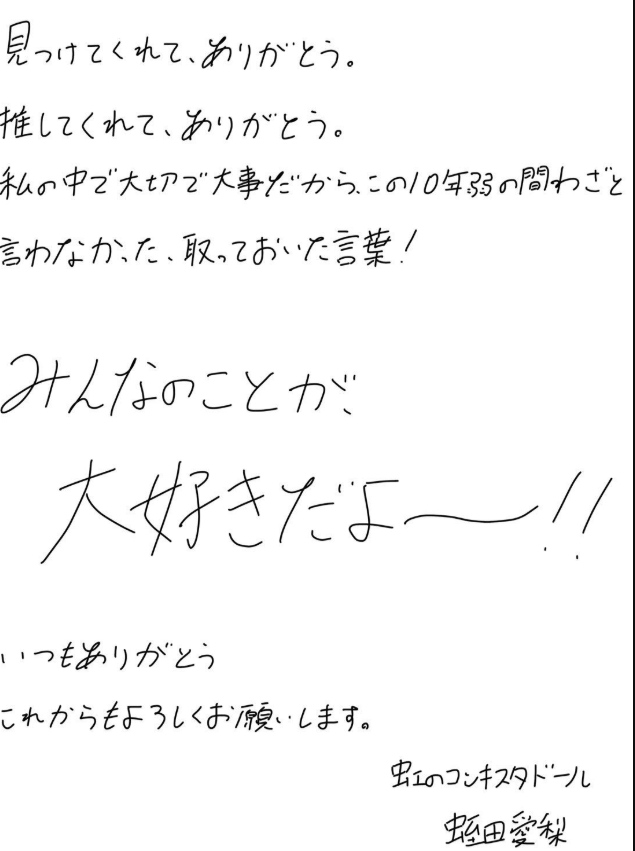 見つけてくれて、ありがとう。
推してくれて、ありがとう。
私の中で大切で大事だから、この10年弱の間わざと
言わなかった、取っておいた言葉！
みんなのことが、
大好きだよ〜!!
いつもありがとう
これからもよろしくお願いします。
虹のコンキスタドール
蛭田愛梨